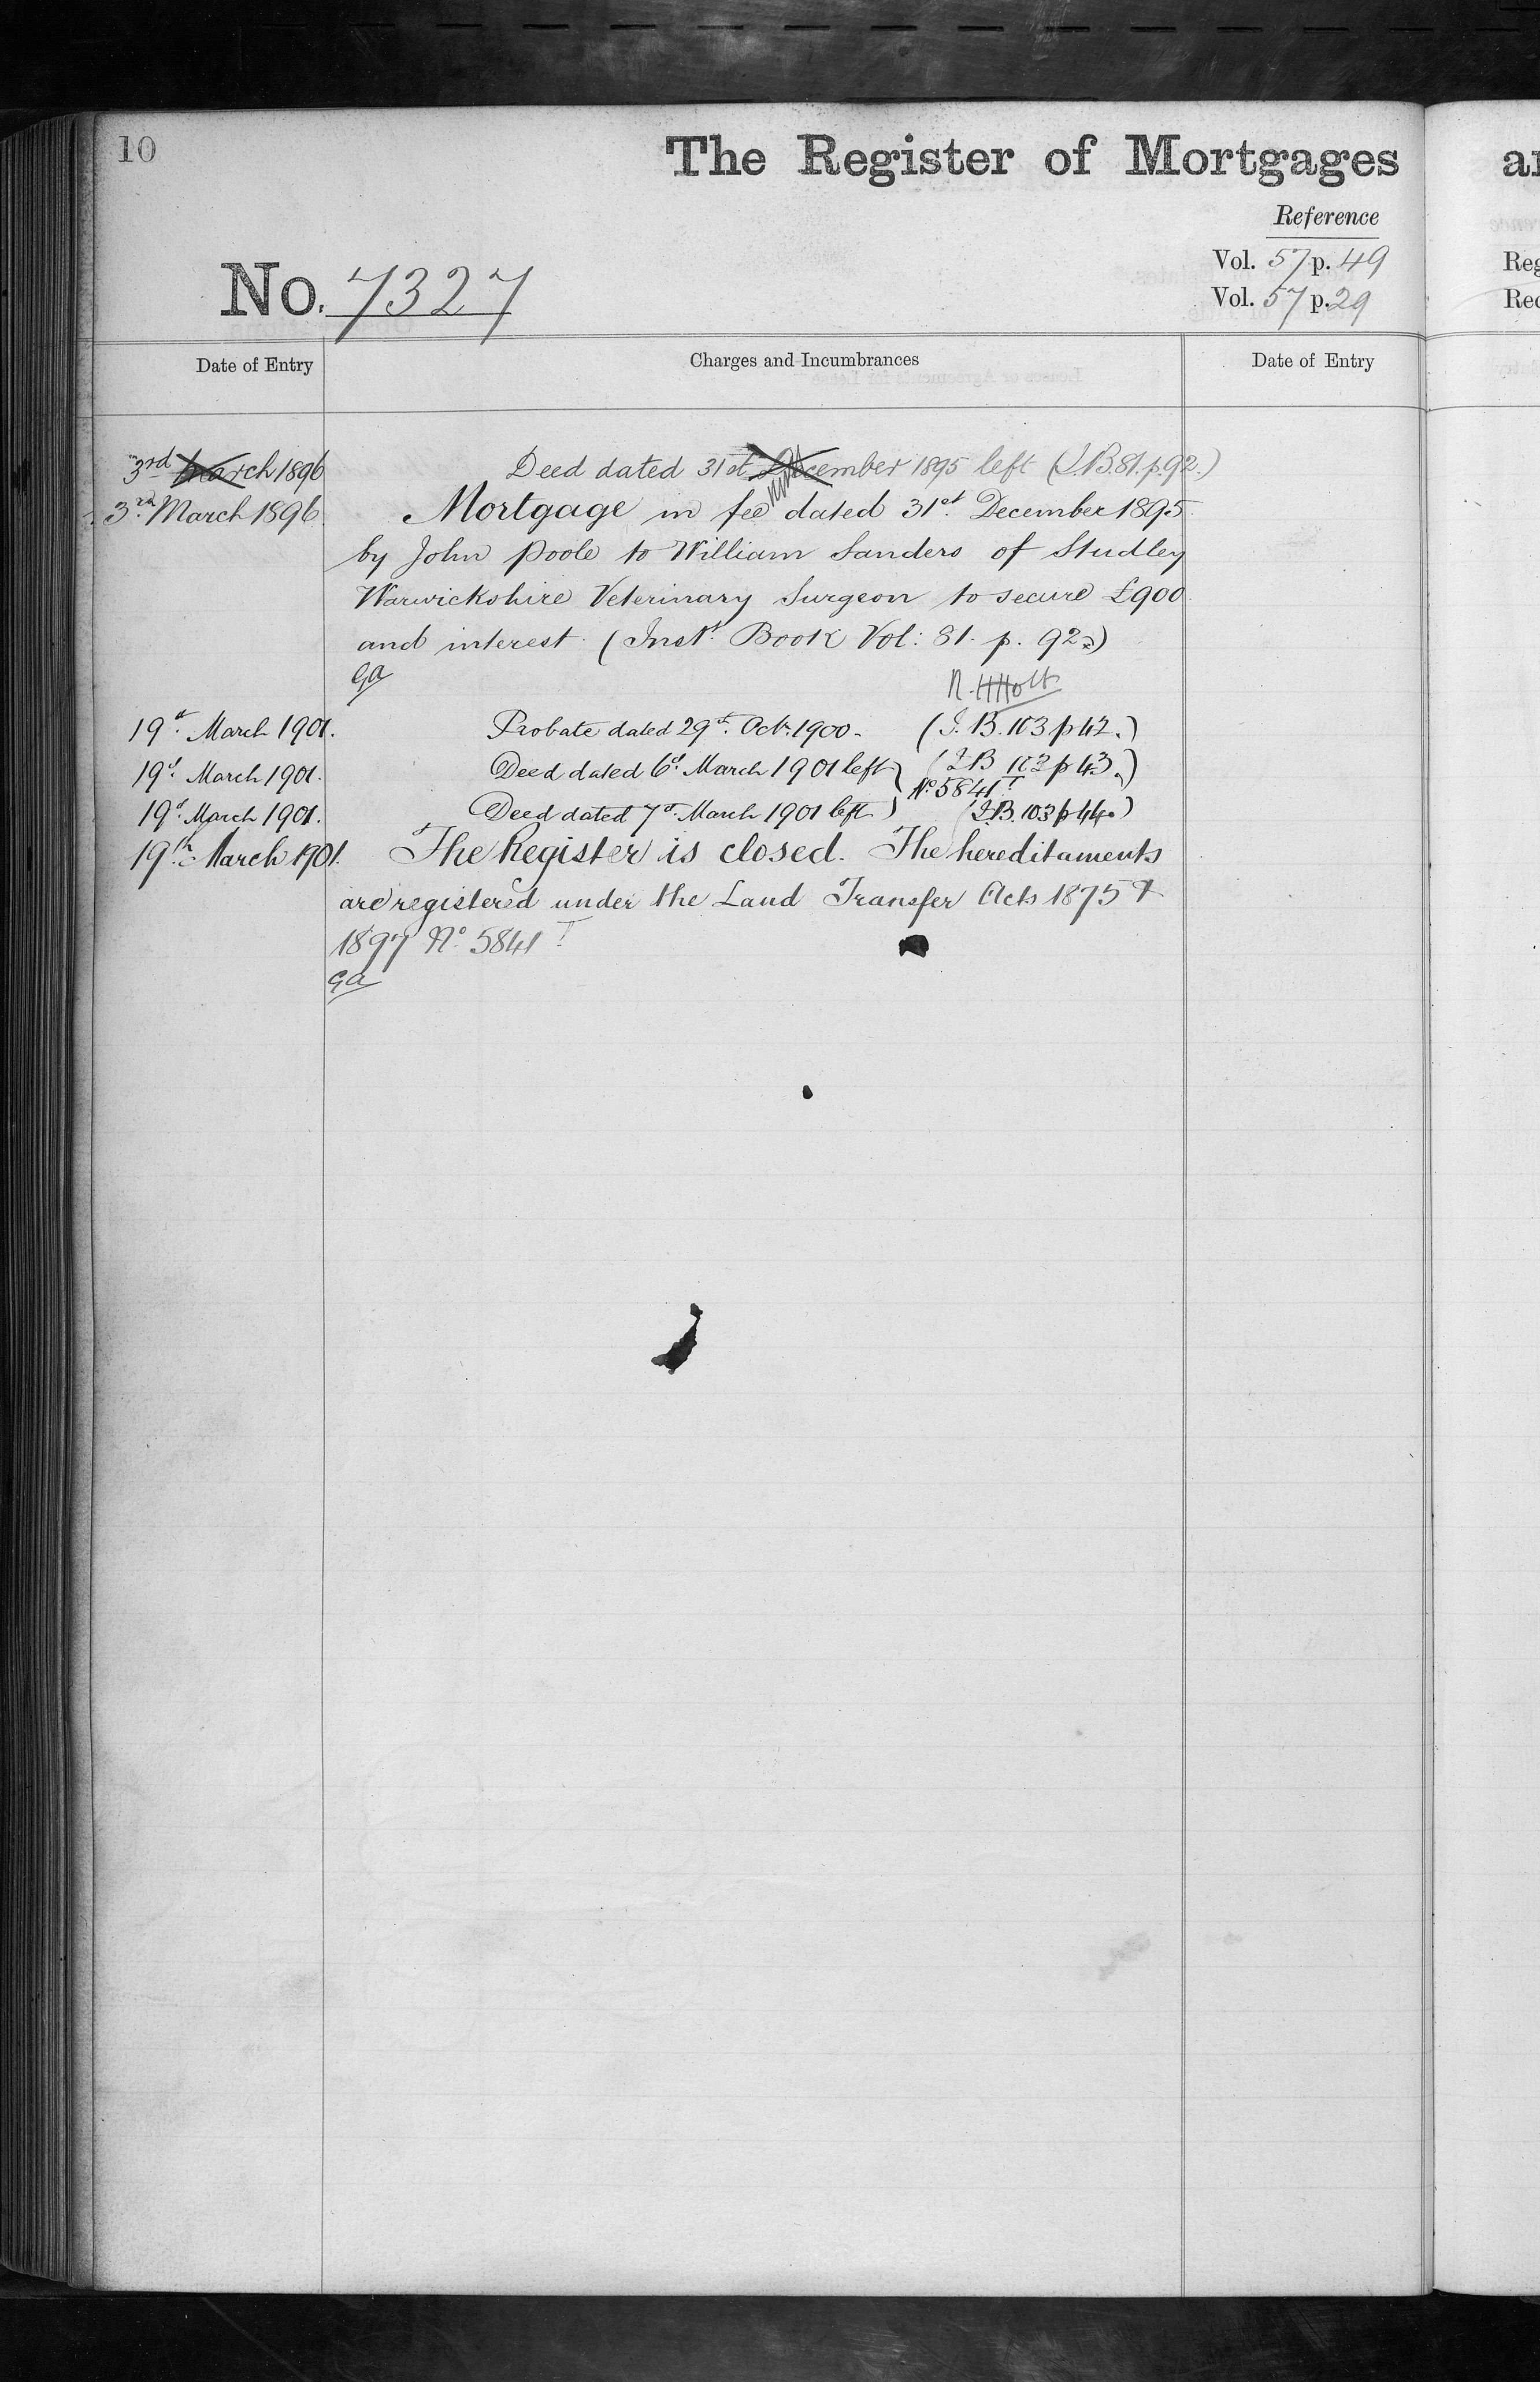 10
The Register of Mortgages
Reference
Vol. 57 p. 49
No. 7327
Vol. 57 p. 29
Date of Entry
Charges and Incumbrances
Date of Entry
3rd March 1896 Deed dated 31st December 1895 left (I.B. 81. p. 92.)
3rd March 1896 Mortgage in fee dated 31st December 1895
by John Poole to William Sanders of Studley
Warwickshire Veterinary Surgeon to secure £900
and interest (Inst. Book Vol: 81. p. 92.)
GA
R. H. Holt
19th March 1901. Probate dated 29th Octr. 1900. (I.B. 103 p 42.)
19th March 1901. Deed dated 6th March 1901 left (I.B 103 p 43.)
No. 5841 T
19th March 1901. Deed dated 7th March 1901 left (I.B. 103 p 44.)
19th March 1901. The Register is closed. The hereditaments
are registered under the Land Transfer Acts 1875 &
1897 No. 5841 T
GA
a
Reg
Rec